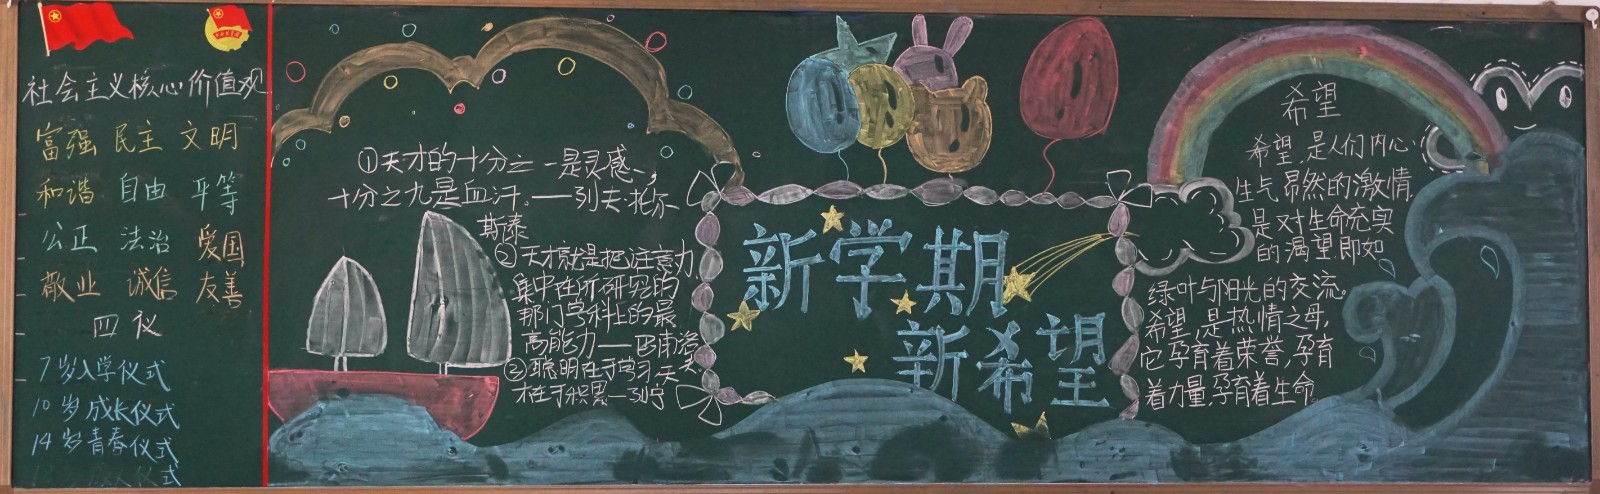 社会主义核心价值观
富强 民主 文明
和谐 自由 平等
公正 法治 爱国
敬业 诚信 友善
四仪
7岁入学仪式
10岁成长仪式
14岁青春仪式
式
①天才的十分之一是灵感,
十分之九是血汗。——列夫·托尔
斯泰
②天才就是把注意力
集中在所研究的
那门学科上的最
高能力——巴甫洛
夫
③聪明在于学习,天
才在于积累—列宁
新学期
新希望
希望
希望,是人们内心
生气昂然的激情,
是对生命充实
的渴望,即如
绿叶与阳光的交流。
希望,是热情之母,
它孕育着荣誉,孕育
着力量,孕育着生命